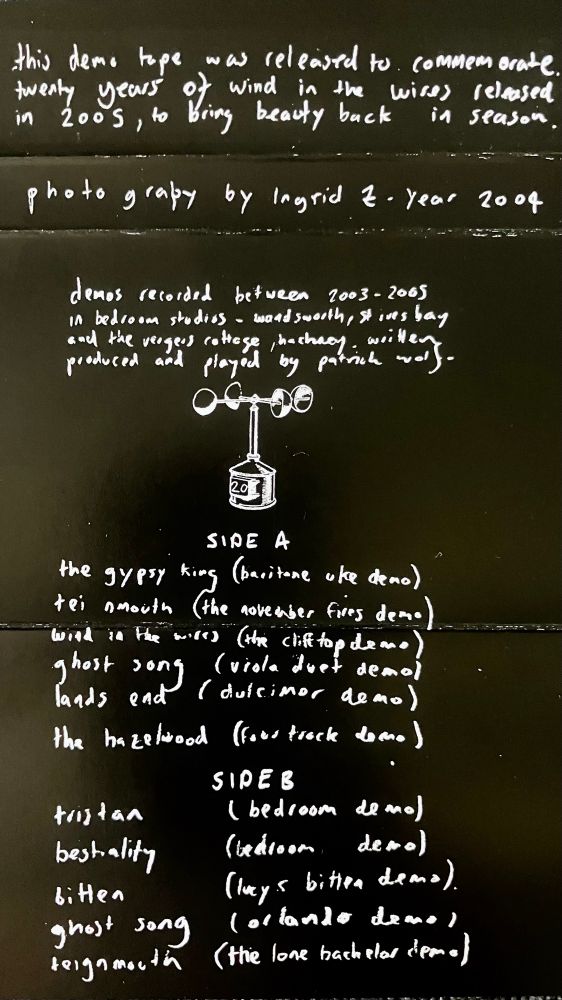 this demo tape was released to commemorate.
twenty years of wind in the wires released
in 2005, to bring beauty back in season.
photo graphy by Ingrid Z - year 2004
demos recorded between 2003 - 2005
in bedroom studios - wandsworth, st ives bay
and the vergers cottage, hackney. written
produced and played by patrick wolf -
20
SIDE A
the gypsy king (baritone uke demo)
tei nmouth (the november fires demo)
wind in the wires (the clifftop demo)
ghost song (viola duet demo)
lands end (dulcimor demo)
the hazelwood (four track demo)
SIDE B
tristan (bedroom demo)
bestiality (bedroom demo)
bitten (lucy s bitten demo).
ghost song (orlando demo)
teignmouth (the lone bachelor demo)